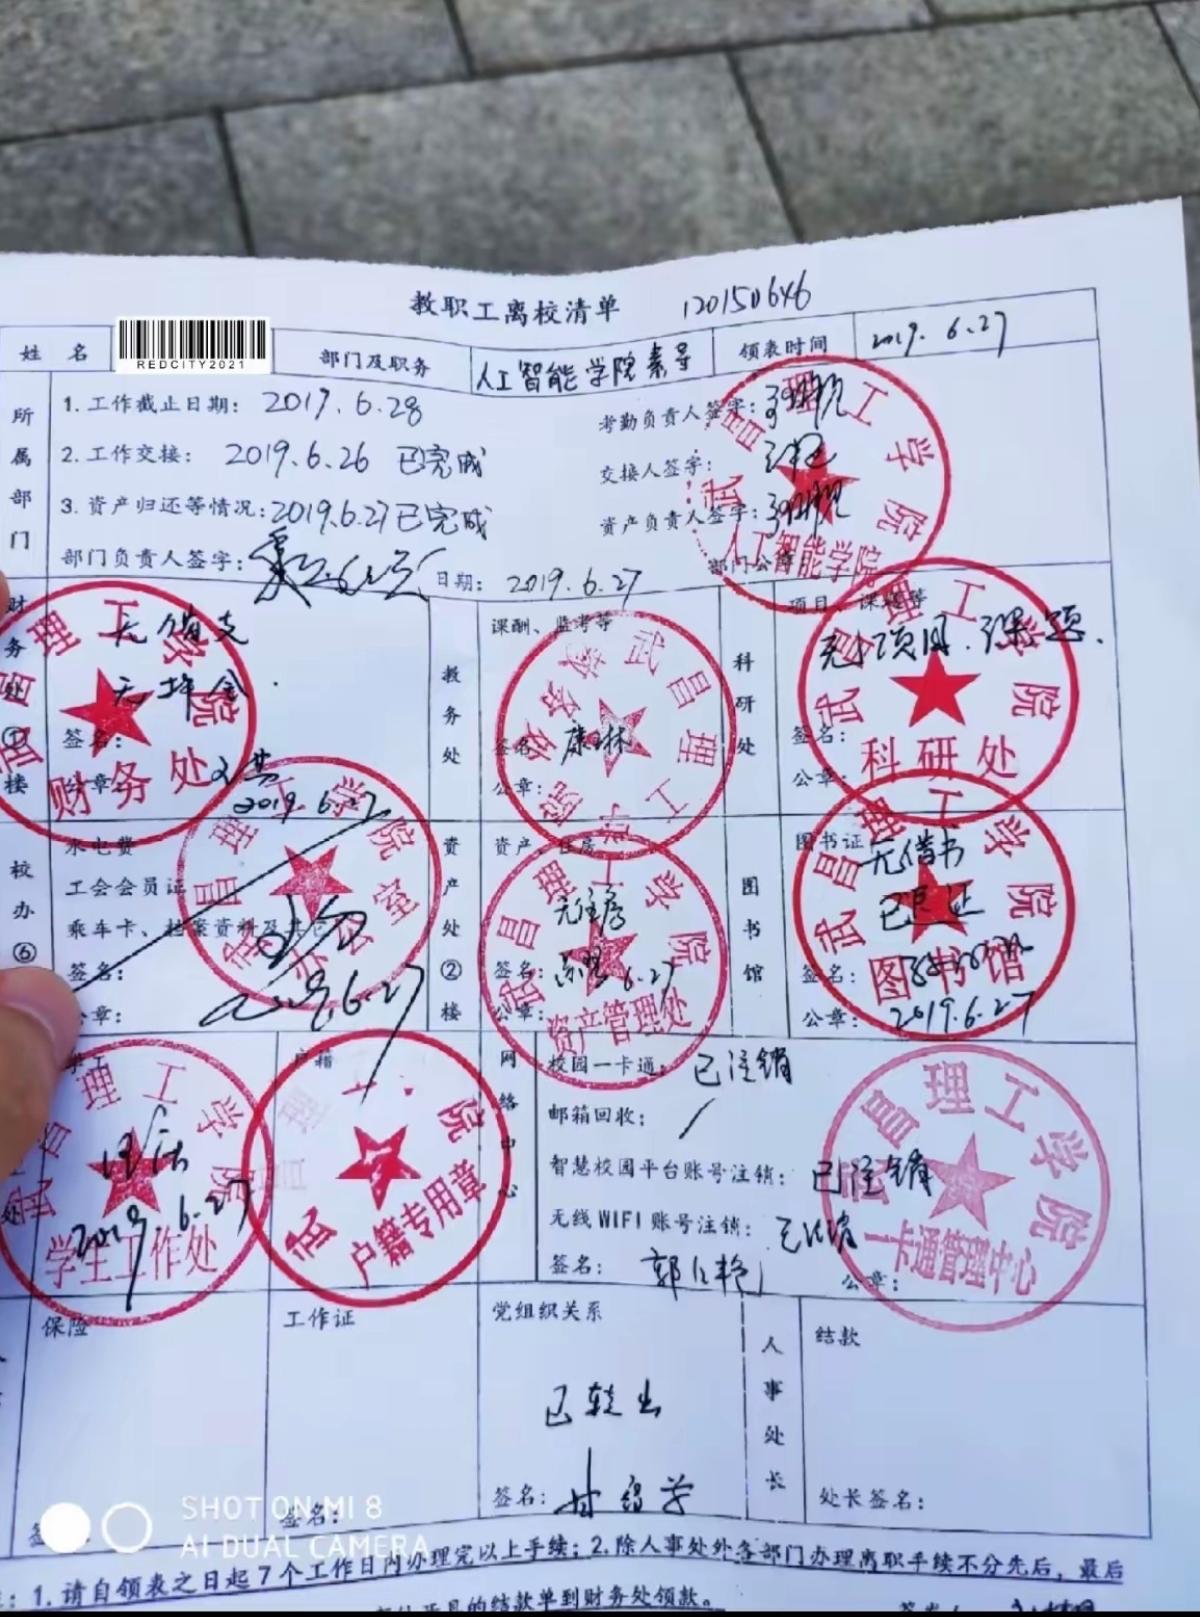 教职工离校清单 120150646
姓 名 REDCITY2021 部门及职务 人工智能学院素导 领表时间 2019.6.27
所属部门
1.工作截止日期: 2019.6.28 考勤负责人签字:
2.工作交接: 2019.6.26 已完成 交接人签字:
3.资产归还等情况:2019.6.27已完成 资产负责人签字:
部门负责人签字: 日期: 2019.6.27 部门公章
武昌理工学院
人工智能学院
财务处①楼
无借支
无奖金.
签名:
公章:
理工学院
财务处
教务处
课酬、监考等
签名: 康琳
公章:
武昌理工学院教务处
科研处
项目、课题等
无项目.课题.
签名:
公章:
武昌理工学院
科研处
校办⑥
2019.6.27
水电费
工会会员证
乘车卡、档案资料及其它
签名:
公章:
2019.6.27
昌理工学院
办公室
资产处②楼
资产、住房
无住房
签名: 6.27
公章:
武昌理工学院
资产管理处
图书馆
图书证
无借书
已退证
签名:
公章: 2019.6.27
武昌理工学院
图书馆
2019.6.27
武昌理工学院
学生工作处
户籍
户籍专用章
网络中心
校园一卡通: 已注销
邮箱回收: /
智慧校园平台账号注销: 已注销
无线WIFI账号注销: 已注销
签名: 公章:
武昌理工学院
一卡通管理中心
保险
工作证
签名:
党组织关系
已转出
签名:
人事处长
结款
处长签名:
SHOT ON MI 8
AI DUAL CAMERA
:1.请自领表之日起7个工作日内办理完以上手续;2.除人事处外各部门办理离职手续不分先后,最后
的结款单到财务处领款。